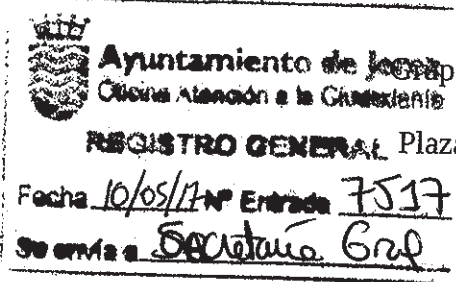 Ayuntamiento de Jerez Grup
Oficina Atención a la Ciudadanía
REGISTRO GENERAL Plaza
Fecha 10/05/17 Nº Entrada 7517
Se envía a Secretaría Gral